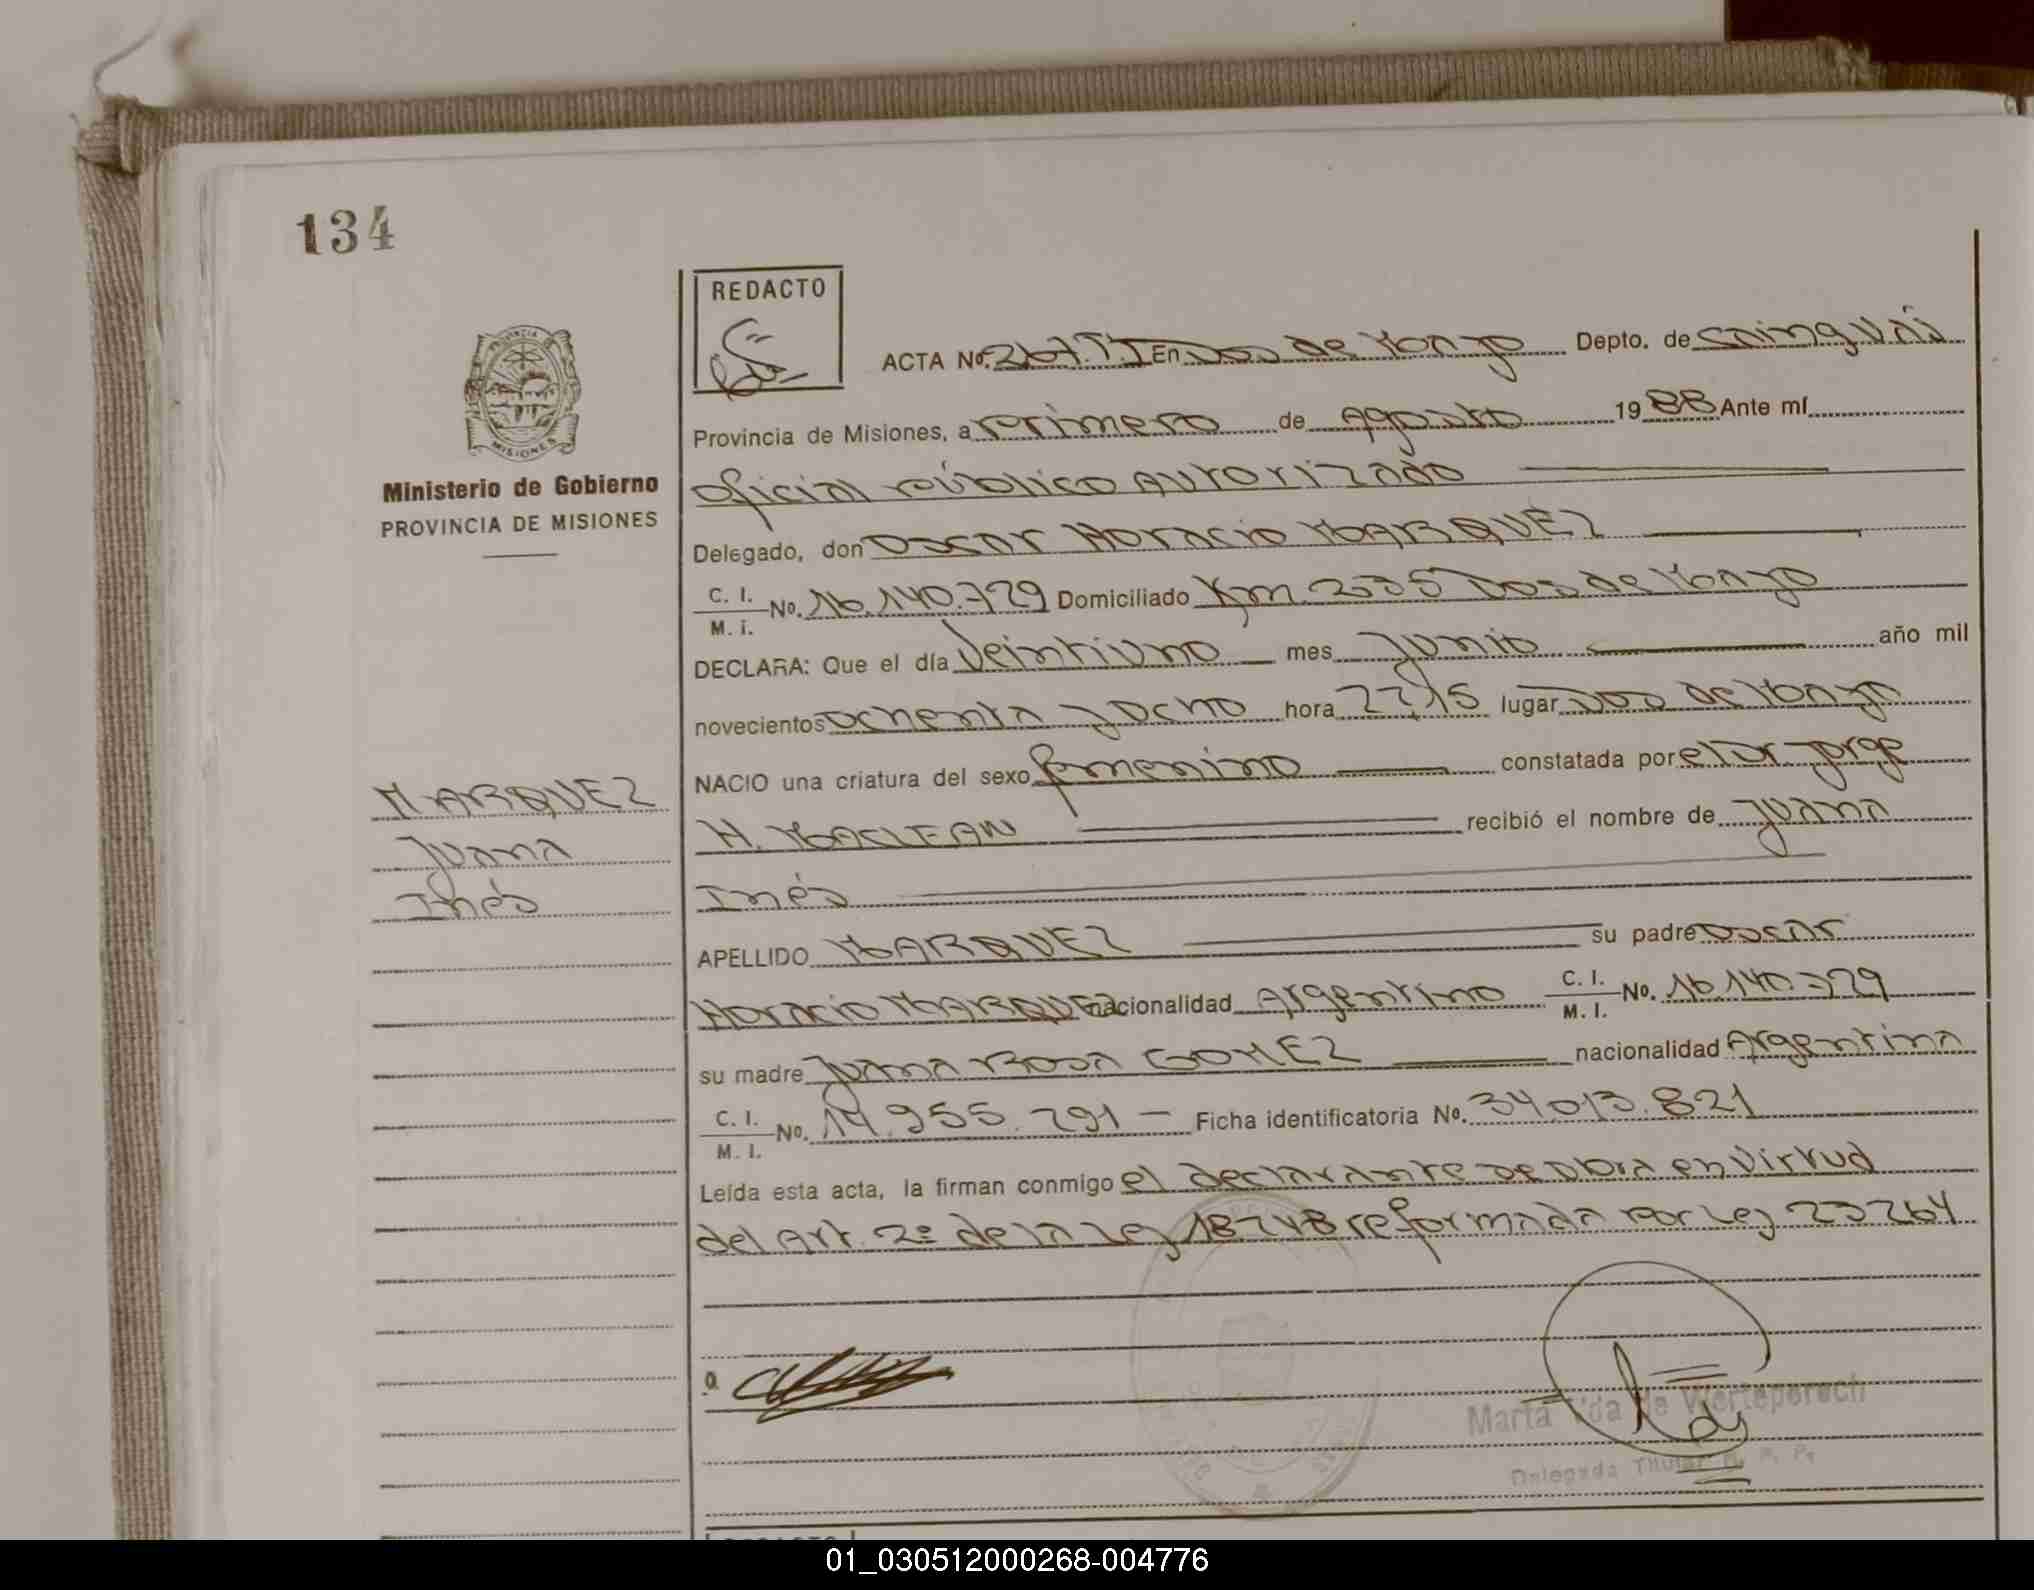 134
REDACTO
ACTA No. 267.T.I En Dos de Mayo Depto. de Cainguás
Provincia de Misiones, a primero de Agosto 1988 Ante mí
PROVINCIA
MISIONES
Ministerio de Gobierno
PROVINCIA DE MISIONES
oficial público autorizado
Delegado, don Oscar Horacio MARQUEZ
C. I.
M. I. No. 16.140.729 Domiciliado Km. 235 Dos de Mayo
DECLARA: Que el día veintiuno mes Junio año mil
novecientos ochenta y ocho hora 22,15 lugar Dos de Mayo
NACIO una criatura del sexo femenino constatada por el Dr Jorge
MARQUEZ
Juana
Inés
H. MACLEAN recibió el nombre de Juana
Inés
APELLIDO MARQUEZ su padre Oscar
Horacio MARQUEZ nacionalidad Argentino C. I.
M. I. No. 16.140.729
su madre Juana Rosa GOMEZ nacionalidad Argentina
C. I.
M. I. No. 14.955.791 - Ficha identificatoria No. 34013.821
Leída esta acta, la firman conmigo el declarante se obra en virtud
del Art. 2º de la Ley 18248 reformada por Ley 23264
Marta Vda de Werteperech
Delegada Titular R. P. P.
01_030512000268-004776